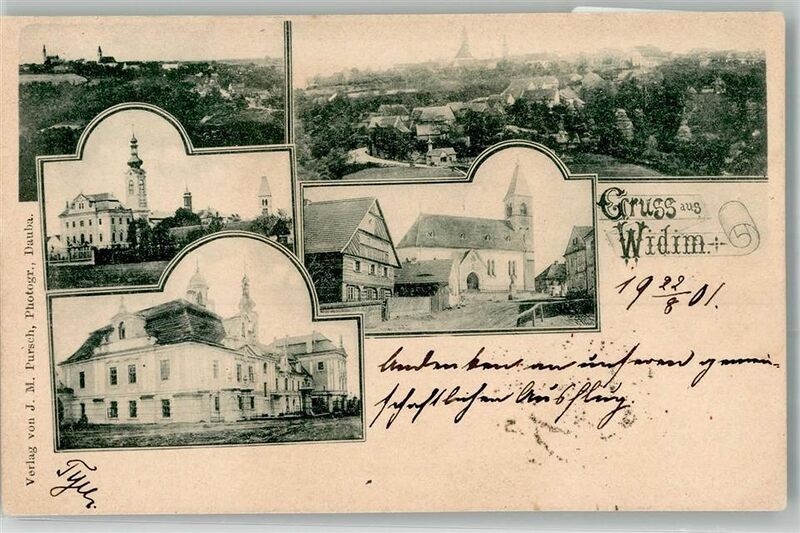 Gruss aus
Widim.
19 22/8 01.
Andenken an unseren gemein-
schaftlichen Ausflug.
Verlag von J. M. Pursch, Photogr., Dauba.